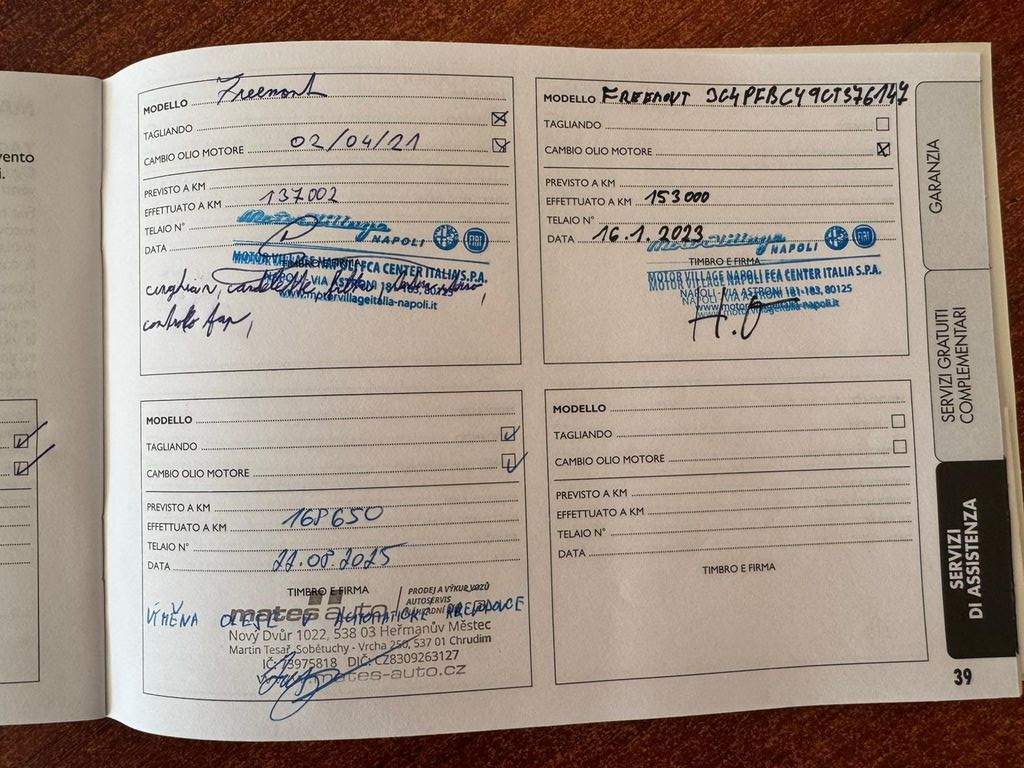 vento
i.
MODELLO Freemont
TAGLIANDO
CAMBIO OLIO MOTORE 02/04/21
PREVISTO A KM
EFFETTUATO A KM 137002
TELAIO N°
DATA
Motor Village
NAPOLI
FIAT
MOTOR VILLAGE NAPOLI FCA CENTER ITALIA S.P.A.
TIMBRO E FIRMA
NAPOLI - VIA ASTRONI 181-183, 80125
www.motorvillageitalia-napoli.it
controllo
MODELLO FREEMONT 3C4PFBCY9CT376147
TAGLIANDO
CAMBIO OLIO MOTORE
PREVISTO A KM
EFFETTUATO A KM 153000
TELAIO N°
DATA 16.1.2023
Motor Village
NAPOLI
FIAT
TIMBRO E FIRMA
MOTOR VILLAGE NAPOLI FCA CENTER ITALIA S.P.A.
NAPOLI - VIA ASTRONI 181-183, 80125
www.motorvillageitalia-napoli.it
MODELLO
TAGLIANDO
CAMBIO OLIO MOTORE
PREVISTO A KM
EFFETTUATO A KM 168650
TELAIO N°
DATA 22.08.2025
TIMBRO E FIRMA
mates auto
PRODEJ A VÝKUP VOZŮ
AUTOSERVIS
NÁHRADNÍ
VÝMĚNA OLEJE V AUTOMATICKÉ PŘEVODOVCE
Nový Dvůr 1022, 538 03 Heřmanův Městec
Martin Tesař, Sobětuchy - Vrcha 250, 537 01 Chrudim
IČ: 73975818 DIČ: CZ8309263127
www.mates-auto.cz
MODELLO
TAGLIANDO
CAMBIO OLIO MOTORE
PREVISTO A KM
EFFETTUATO A KM
TELAIO N°
DATA
TIMBRO E FIRMA
GARANZIA
SERVIZI GRATUITI
COMPLEMENTARI
SERVIZI
DI ASSISTENZA
39